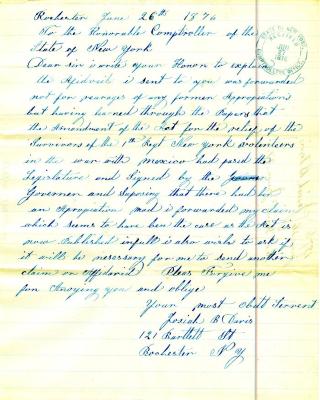 Rochester June 26th 1876
To the Honorable Comptroller of the
State of New York
Dear sir i write your Honor to explain
the Afidevit i sent to you was forwarded
not for rearages of any former Appropiations
but having learned through the Papers that
the Amendment of the Act for the relief of the
Survivors of the 1th Regt New York volenteers
in the war with mexico had pased the
Legislature and Signed by the
Governer and Suposing that there had be
an Apropiation mad i forwarded my claim
which seems to have ben the case as the Act is
now Published in full i also wishe to ask if
it wills be necessary for me to send another
claim or Affidavid Pleas Forgive me
for Anoying you and oblige
Your most obdt Servent
Josiah B Davis
121 Bartlett St
Rochester N Y